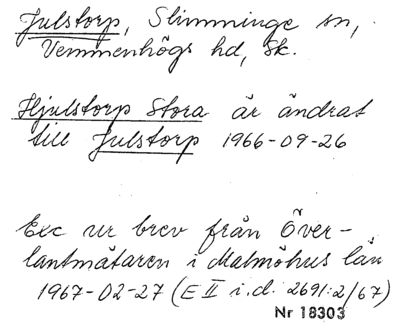 Julstorp, Slimminge sn,
Vemmenhögs hd, Sk.
Hjulstorp Stora är ändrat
till Julstorp 1966-09-26
Exc ur brev från Över-
lantmätaren i Malmöhus län
1967-02-27 (E II i.d. 2691:2/67)
Nr 18303